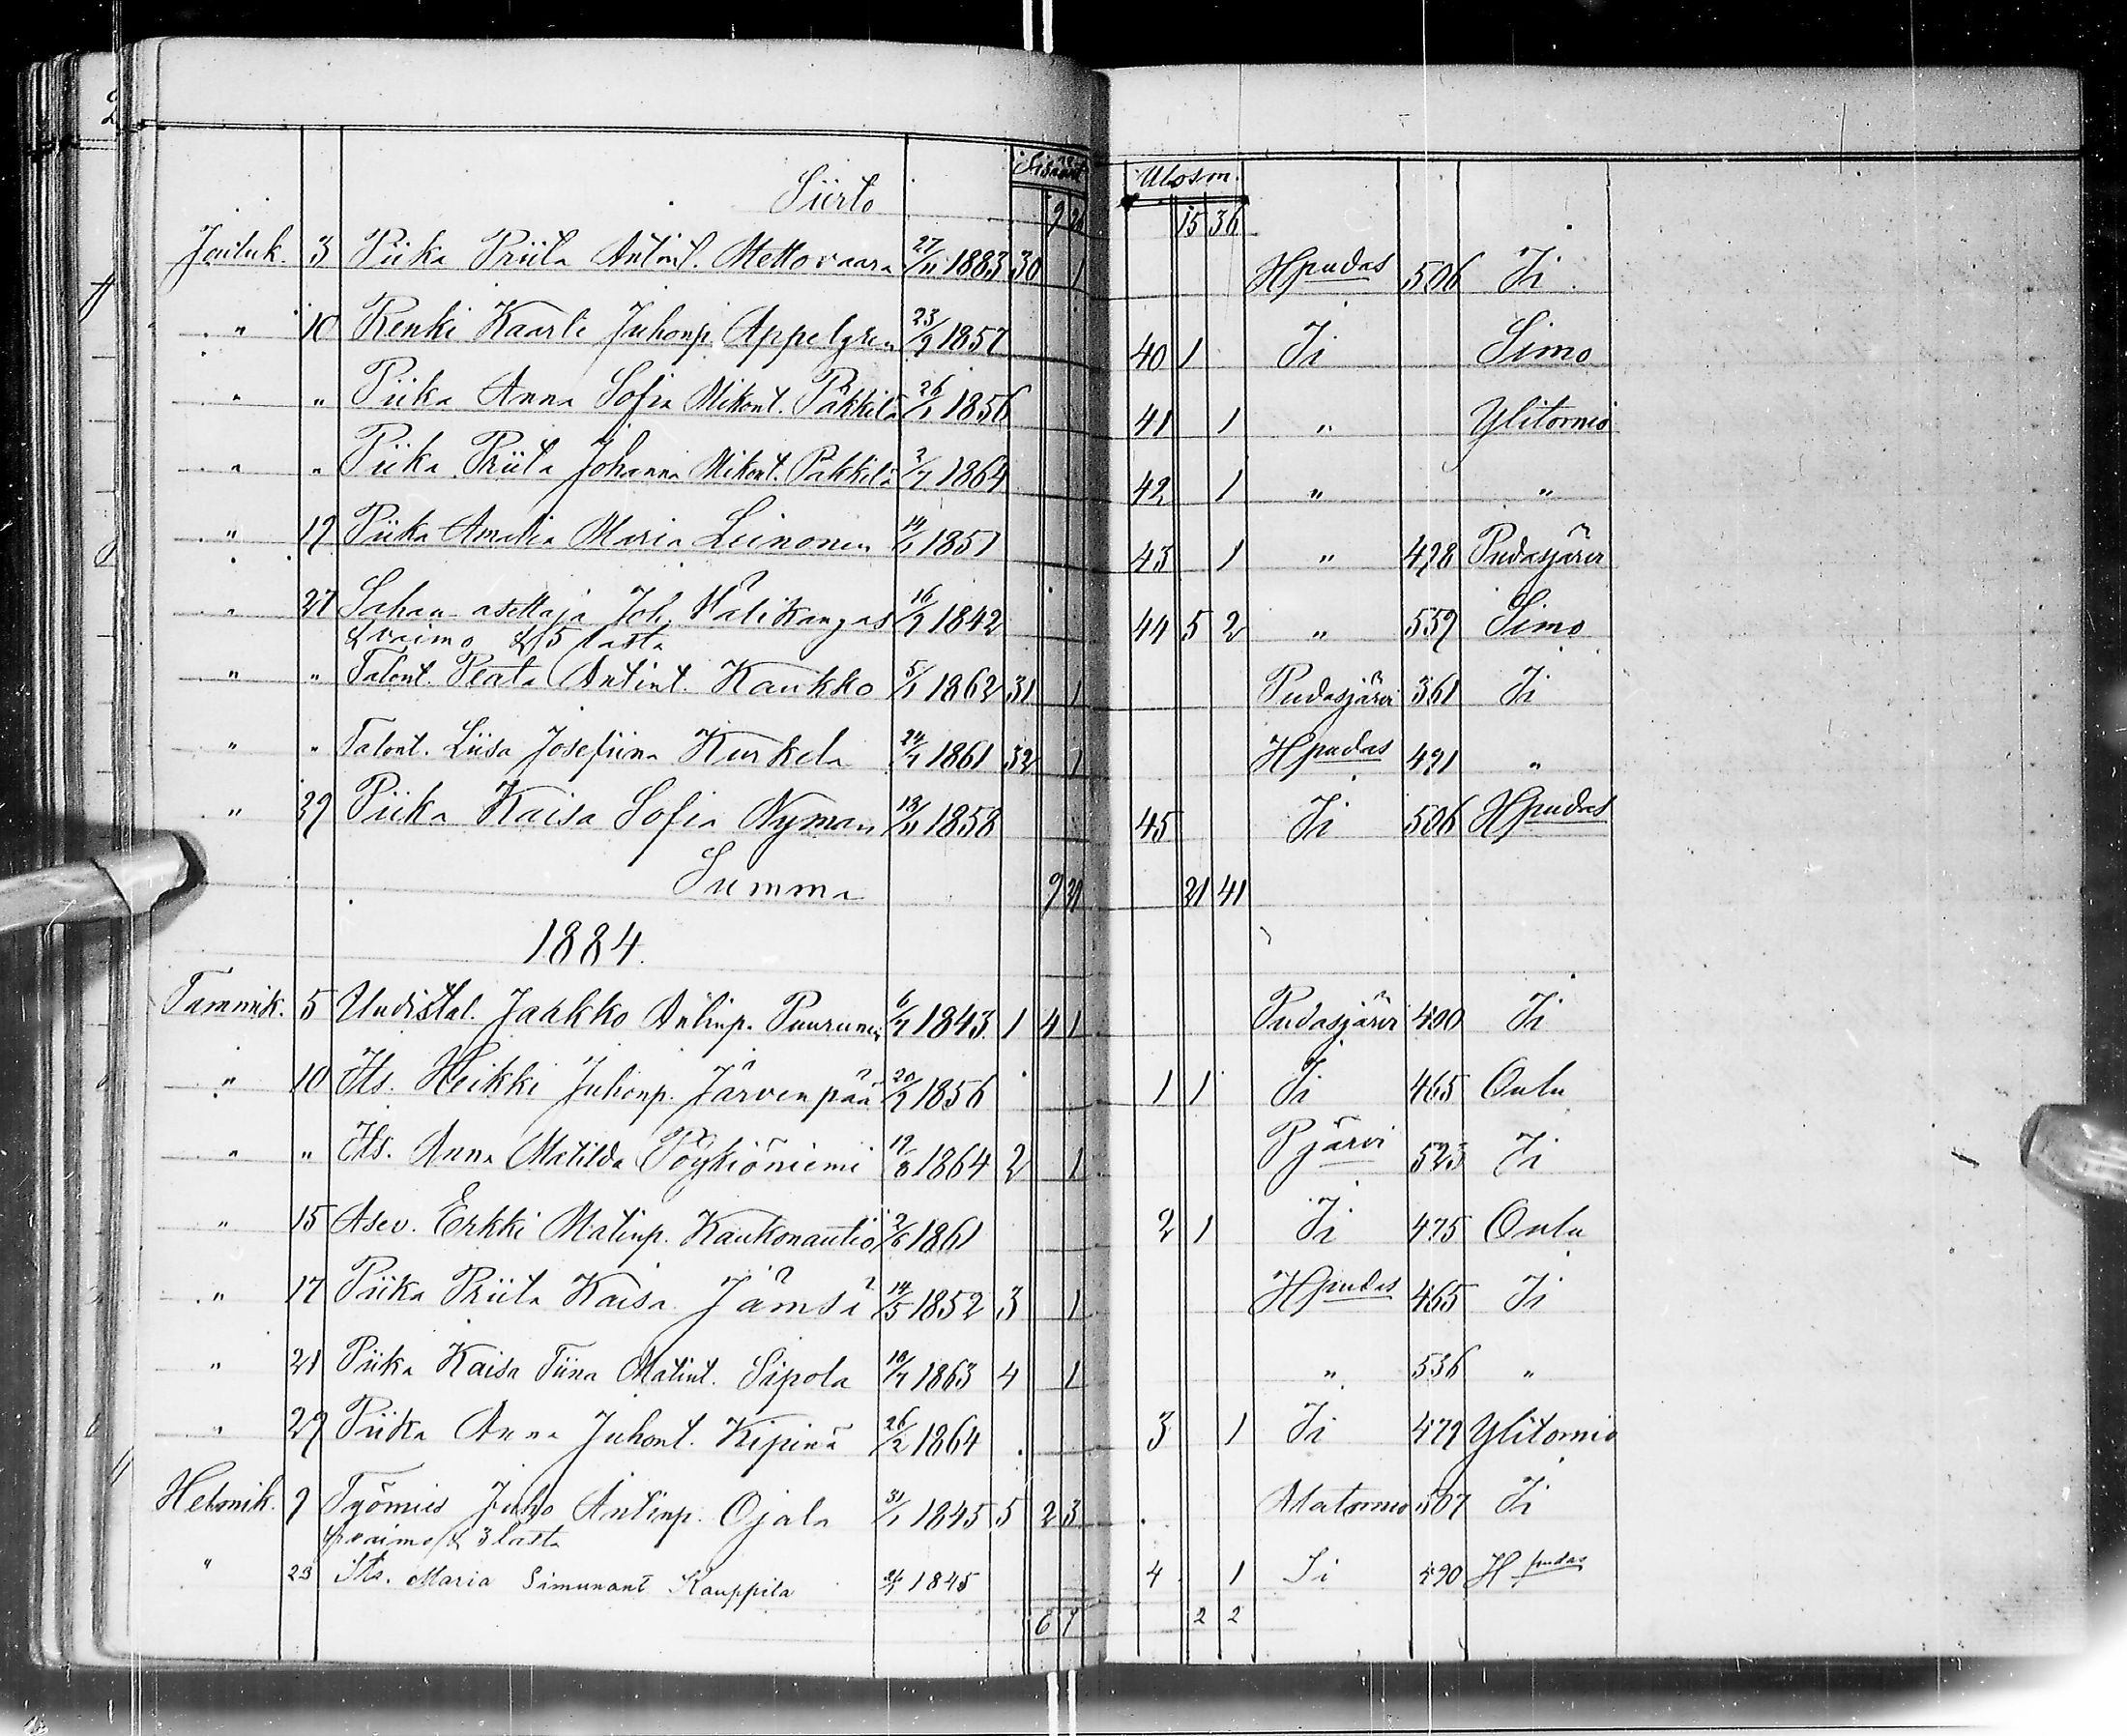 Sisään Ulosm.
Siirto 9 26 15 36
Jouluk. 3 Piika Priita Antint. Mettovaara 27/11 1883 30 1 Hpudas 506 Ii
" 10 Renki Kaarle Juhonp. Appelgren 23/9 1857 40 1 Ii Simo
" " Piika Anna Sofia Mikont. Pakkila 26/1 1856 41 1 " Ylitornio
" " Piika Priita Johanna Mikont. Pakkila 2/7 1864 42 1 " "
" 19 Piika Amalia Maria Leinonen 14/1 1851 43 1 " 478 Pudasjärvi
" 27 Sahan asettaja Joh. Halikangas 16/2 1842 44 5 2 " 559 Simo
& vaimo & 5 lasta
" " Talont. Peata Antint. Kaukko 5/1 1862 31 1 Pudasjärvi 361 Ii
" " Talont. Liisa Josefiina Kurkela 24/7 1861 32 1 Hpudas 491 "
" 29 Piika Kaisa Sofia Nyman 18/11 1858 45 Ii 506 Hpudas
Summa 9 29 21 41
1884.
Tammik. 5 Uudistal. Jaakko Antinp. Puurunen 6/7 1843 1 4 1 Pudasjärvi 400 Ii
" 10 Its. Heikki Juhonp. Järvenpää 20/2 1856 1 1 Ii 465 Oulu
" " Its. Anna Matilda Pöykiöniemi 19/8 1864 2 1 Pjärvi 523 Ii
" 15 Asev. Erkki Matinp. Kaukonautio 2/6 1861 2 1 Ii 475 Oulu
" 17 Piika Priita Kaisa Jämsä 14/5 1852 3 1 Hpudas 465 Ii
" 21 Piika Kaisa Tiina Matint. Sipola 18/7 1863 4 1 " 536 "
" 29 Piika Anna Juhont. Kipinä 26/2 1864 3 1 Ii 479 Ylitornio
Helmik. 9 Työmies Juho Antinp. Ojala 31/1 1845 5 2 3 Alatornio 507 Ii
& vaimo & 3 lasta
" 23 Its. Maria Simunant Kauppila 1845 4 1 Ii 490 Hpudas
6 7 2 2